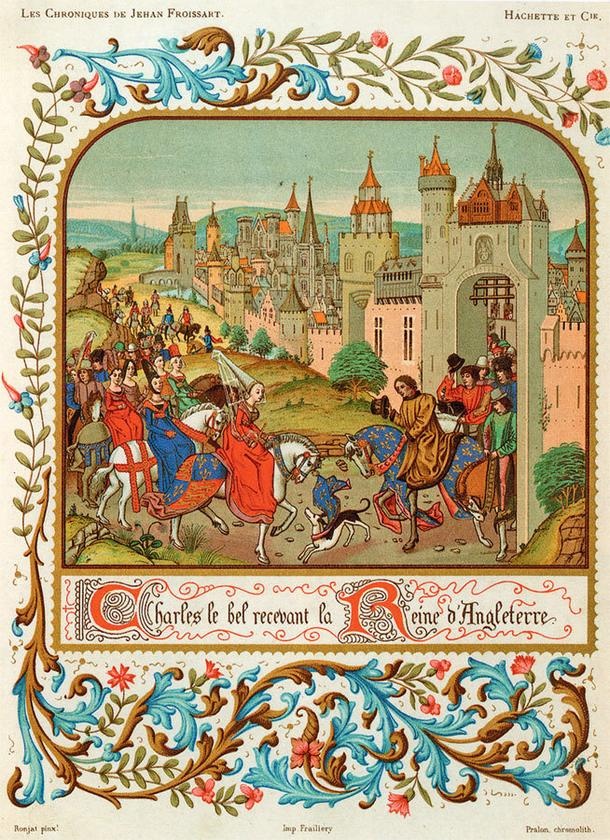 Les Chroniques de Jehan Froissart.
Hachette et Cie.
Charles le bel recevant la Reine d'Angleterre.
Ronjat pinx!
Imp. Fraillery
Pralon, chromolith.